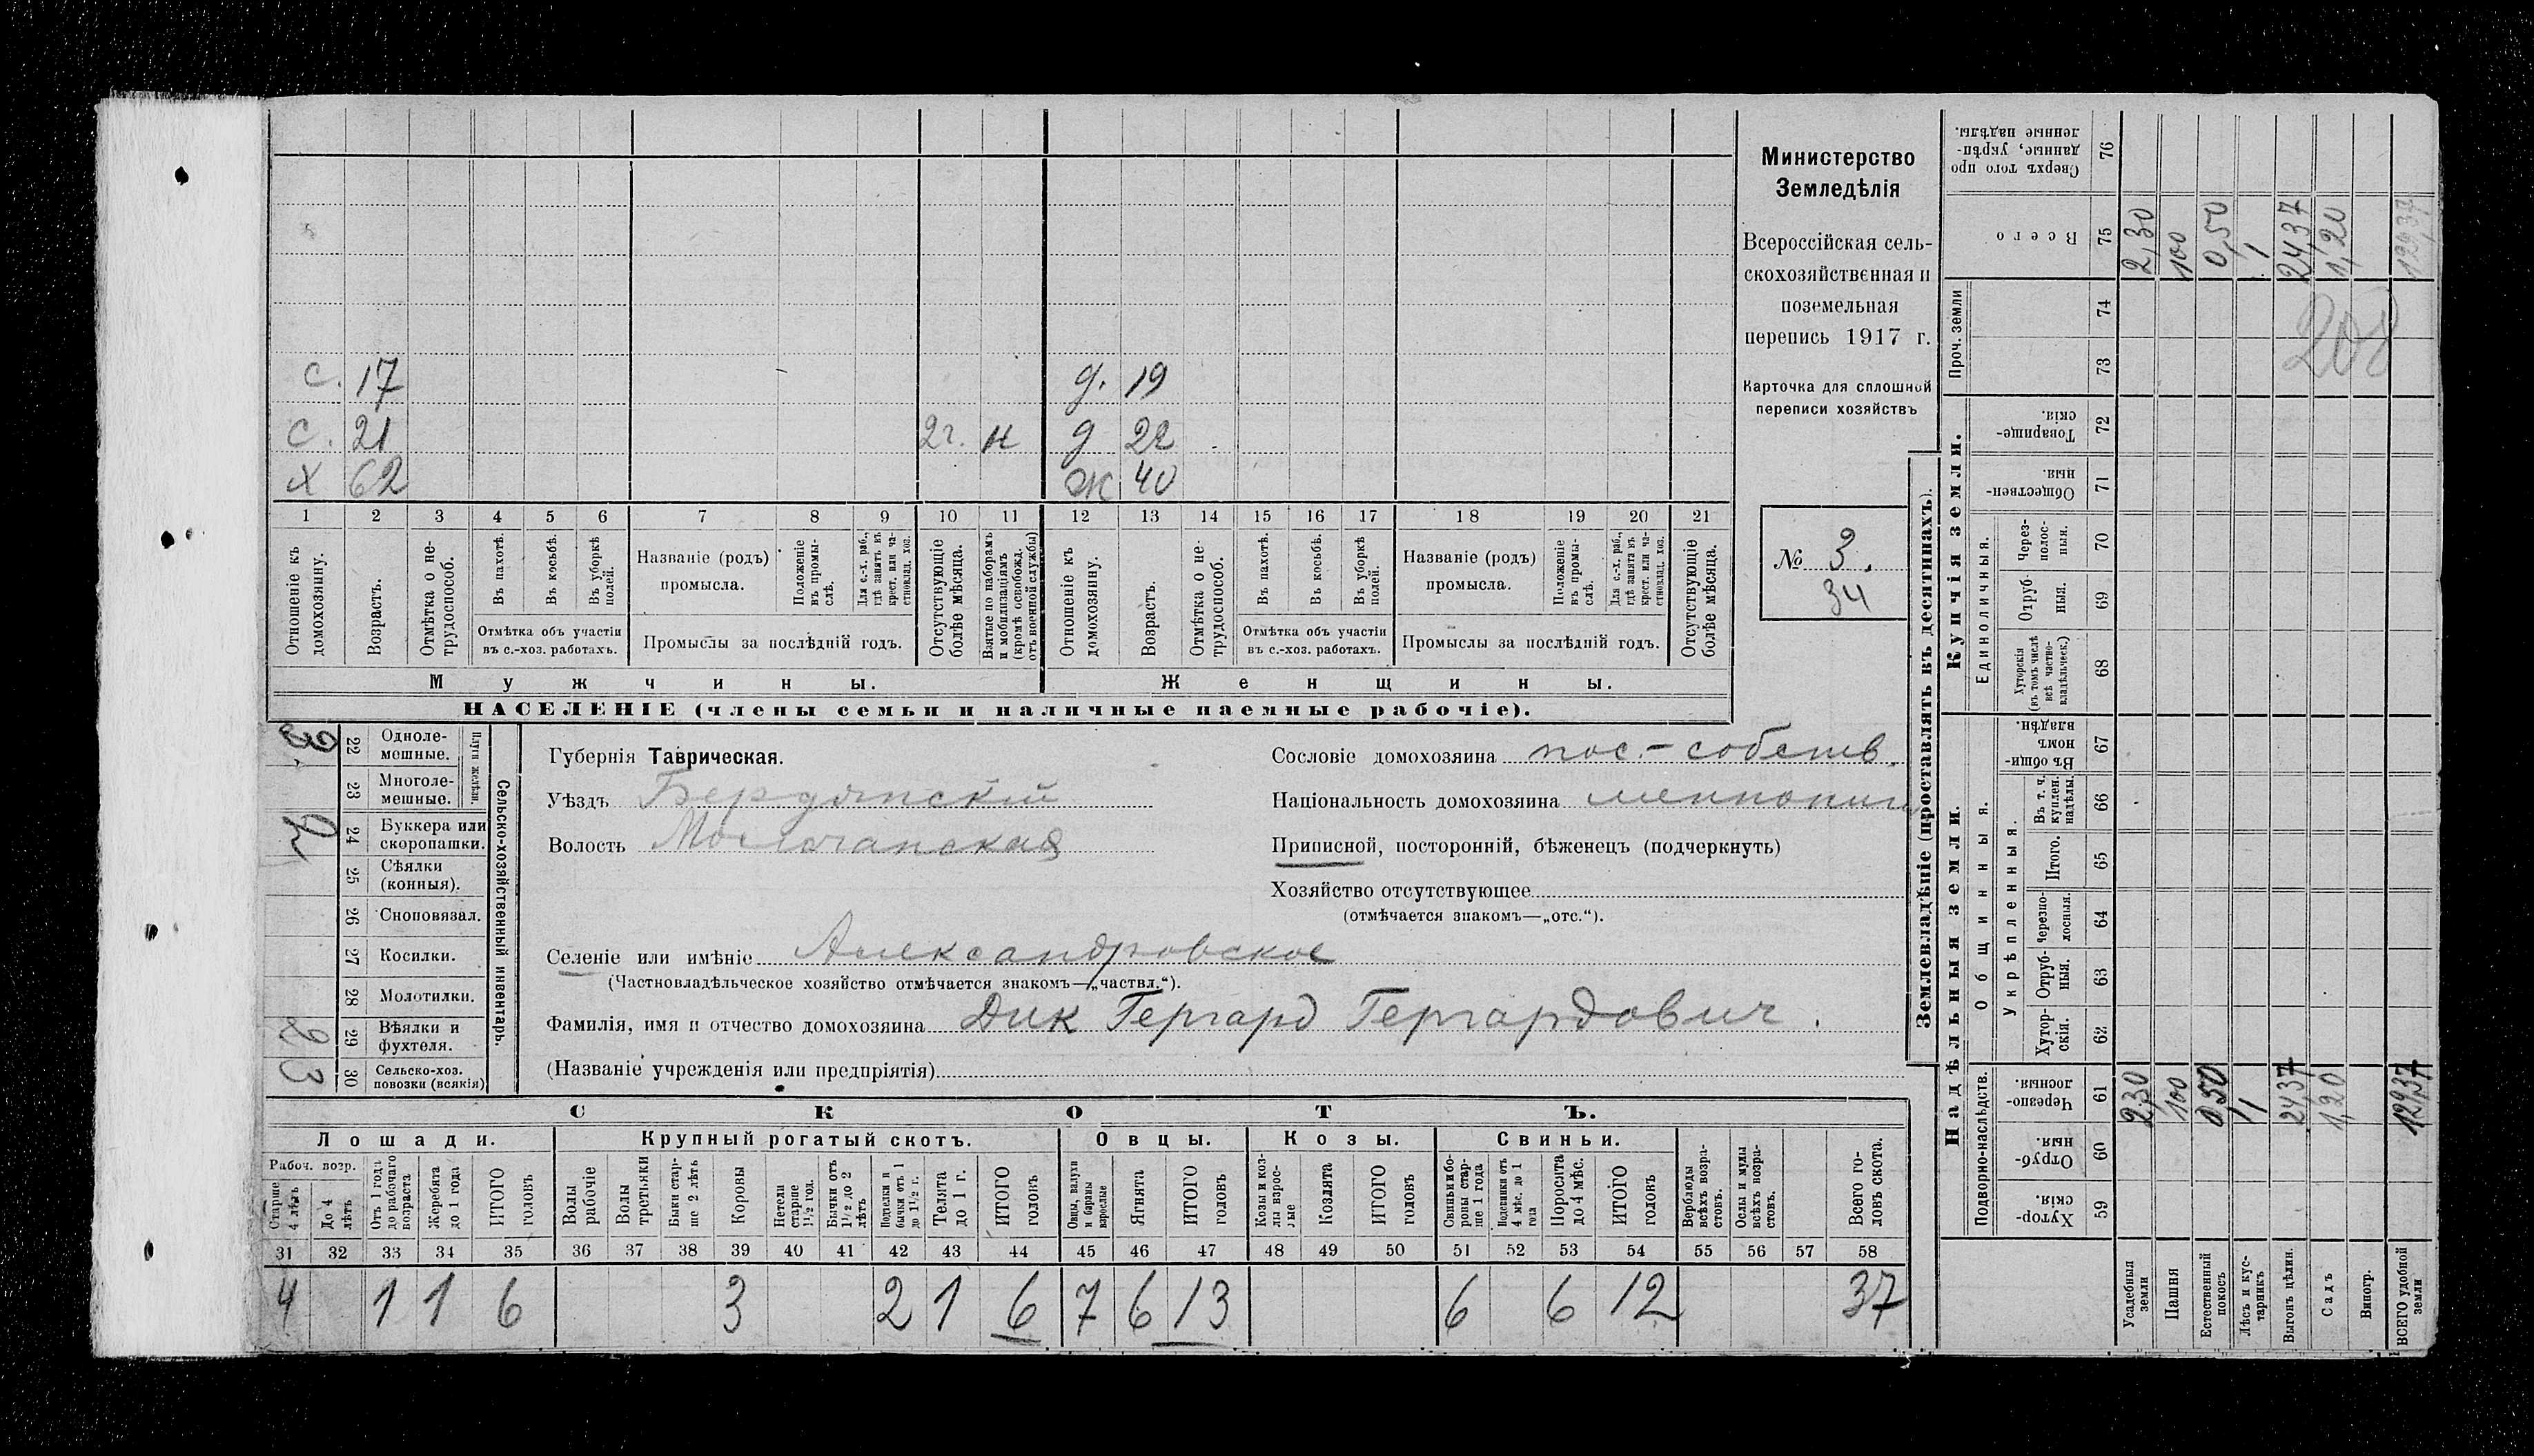 с. 17 д. 19
с. 21 2г. н д 22
х 62 ж 40
1 2 3 4 5 6 7 8 9 10 11 12 13 14 15 16 17 18 19 20 21
Отношеніе къ домохозяину.
Возрастъ.
Отмѣтка о не-
трудоспособ.
Въ пахотѣ.
Въ косьбѣ.
Въ уборкѣ
полей.
Отмѣтка объ участіи
въ с.-хоз. работахъ.
Названіе (родъ)
промысла.
Положеніе
въ промы-
слѣ.
Для с.-х. раб.,
гдѣ занятъ въ
крест. или ча-
стновлад. хоз.
Промыслы за послѣдній годъ.
Отсутствующіе
болѣе мѣсяца.
Взятые по наборамъ
и мобилизаціямъ
(кромѣ освобожд.
отъ военной службы)
Отношеніе къ
домохозяину.
Возрастъ.
Отмѣтка о не-
трудоспособ.
Въ пахотѣ.
Въ косьбѣ.
Въ уборкѣ
полей.
Отмѣтка объ участіи
въ с.-хоз. работахъ.
Названіе (родъ)
промысла.
Положеніе
въ промы-
слѣ.
Для с.-х. раб.,
гдѣ занятъ въ
крест. или ча-
стновлад. хоз.
Промыслы за послѣдній годъ.
Отсутствующіе
болѣе мѣсяца.
Мужчины.
Женщины.
НАСЕЛЕНІЕ (члены семьи и наличные наемные рабочіе).
Министерство
Земледѣлія
Всероссійская сель-
скохозяйственная и
поземельная
перепись 1917 г.
Карточка для сплошной
переписи хозяйствъ
№ 3.
34
Сельско-хозяйственный инвентарь.
Плуги желѣзн.
22 Одноле-
мешные.
23 Многоле-
мешные.
24 Буккера или
скоропашки.
25 Сѣялки
(конныя).
26 Сноповязал.
27 Косилки.
28 Молотилки.
2 29 Вѣялки и
фухтеля.
3 30 Сельско-хоз.
повозки (всякія)
Губернія Таврическая.
Уѣздъ Бердянскій
Волость Молочанская
Сословіе домохозяина пос.-собств.
Національность домохозяина
Приписной, посторонній, бѣженецъ (подчеркнуть)
Хозяйство отсутствующее
(отмѣчается знакомъ—„отс.“).
Селеніе или имѣніе Александровское
(Частновладѣльческое хозяйство отмѣчается знакомъ—„частвл.“).
Фамилія, имя и отчество домохозяина Дик Гергард Гергардович.
(Названіе учрежденія или предпріятія)
СКОТЪ.
Лошади. Крупный рогатый скотъ. Овцы. Козы. Свиньи.
Рабоч. возр.
Старше
4 лѣтъ
До 4
лѣтъ
Отъ 1 года
до рабочаго
возраста
Жеребята
до 1 года
ИТОГО
головъ
Волы
рабочіе
Волы
третьяки
Быки стар-
ше 2 лѣтъ
Коровы
Нетели
старше
1½ год.
Бычки отъ
1½ до 2
лѣтъ
Подтелки и
бычки отъ 1
до 1½ г.
Телята
до 1 г.
ИТОГО
головъ
Овцы, валухи
и бараны
взрослые
Ягнята
ИТОГО
головъ
Козы и коз-
лы взрос-
лые
Козлята
ИТОГО
головъ
Свиньи и бо-
ровы стар-
ше 1 года
Подсвинки отъ
4 мѣс. до 1
года
Поросята
до 4 мѣс.
ИТОГО
головъ
Верблюды
всѣхъ возра-
стовъ.
Ослы и мулы
всѣхъ возра-
стовъ.
Всего го-
ловъ скота.
31 32 33 34 35 36 37 38 39 40 41 42 43 44 45 46 47 48 49 50 51 52 53 54 55 56 57 58
4 1 1 6 3 2 1 6 7 6 13 6 6 12 37
Землевладѣніе (проставлять въ десятинахъ).
Надѣльныя земли.
Купчія земли.
Проч. земли
Подворно-наслѣдств.
Общинныя.
Укрѣпленныя.
Единоличныя.
Сверхъ того про
данные, укрѣп-
ленные надѣлы. 76
Всего 75 2,30 100 0,50 1 24,37 1,20 129,37
74
73
208
Товарище-
скія. 72
Обществен-
ныя. 71
Через-
полос-
ныя. 70
Отруб-
ныя. 69
Хуторскія
(въ томъ числѣ
всѣ частно-
владѣльческ.) 68
Въ общи-
номъ
владѣн. 67
Въ т. ч.
куплен.
надѣлы. 66
Итого. 65
Черезпо-
лосныя. 64
Отруб-
ныя. 63
Хутор-
скія. 62
Черезпо-
лосныя. 61 2,30 100 0,50 1 24,37 1,20 129,37
Отруб-
ныя. 60
Хутор-
скія. 59
Усадебныя
земли
Пашня
Естественный
покосъ
Лѣсъ и кус-
тарникъ
Выгонъ цѣлин.
Садъ
Виногр.
ВСЕГО удобной
земли